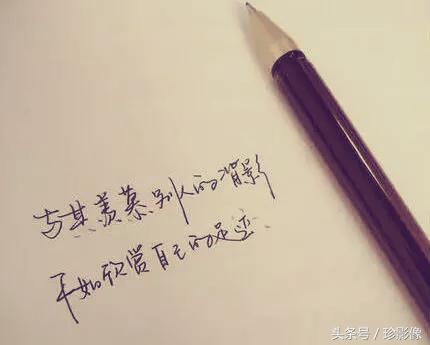 与其羡慕别人的背影
不如欣赏自己的足迹
头条号 / 珍影像